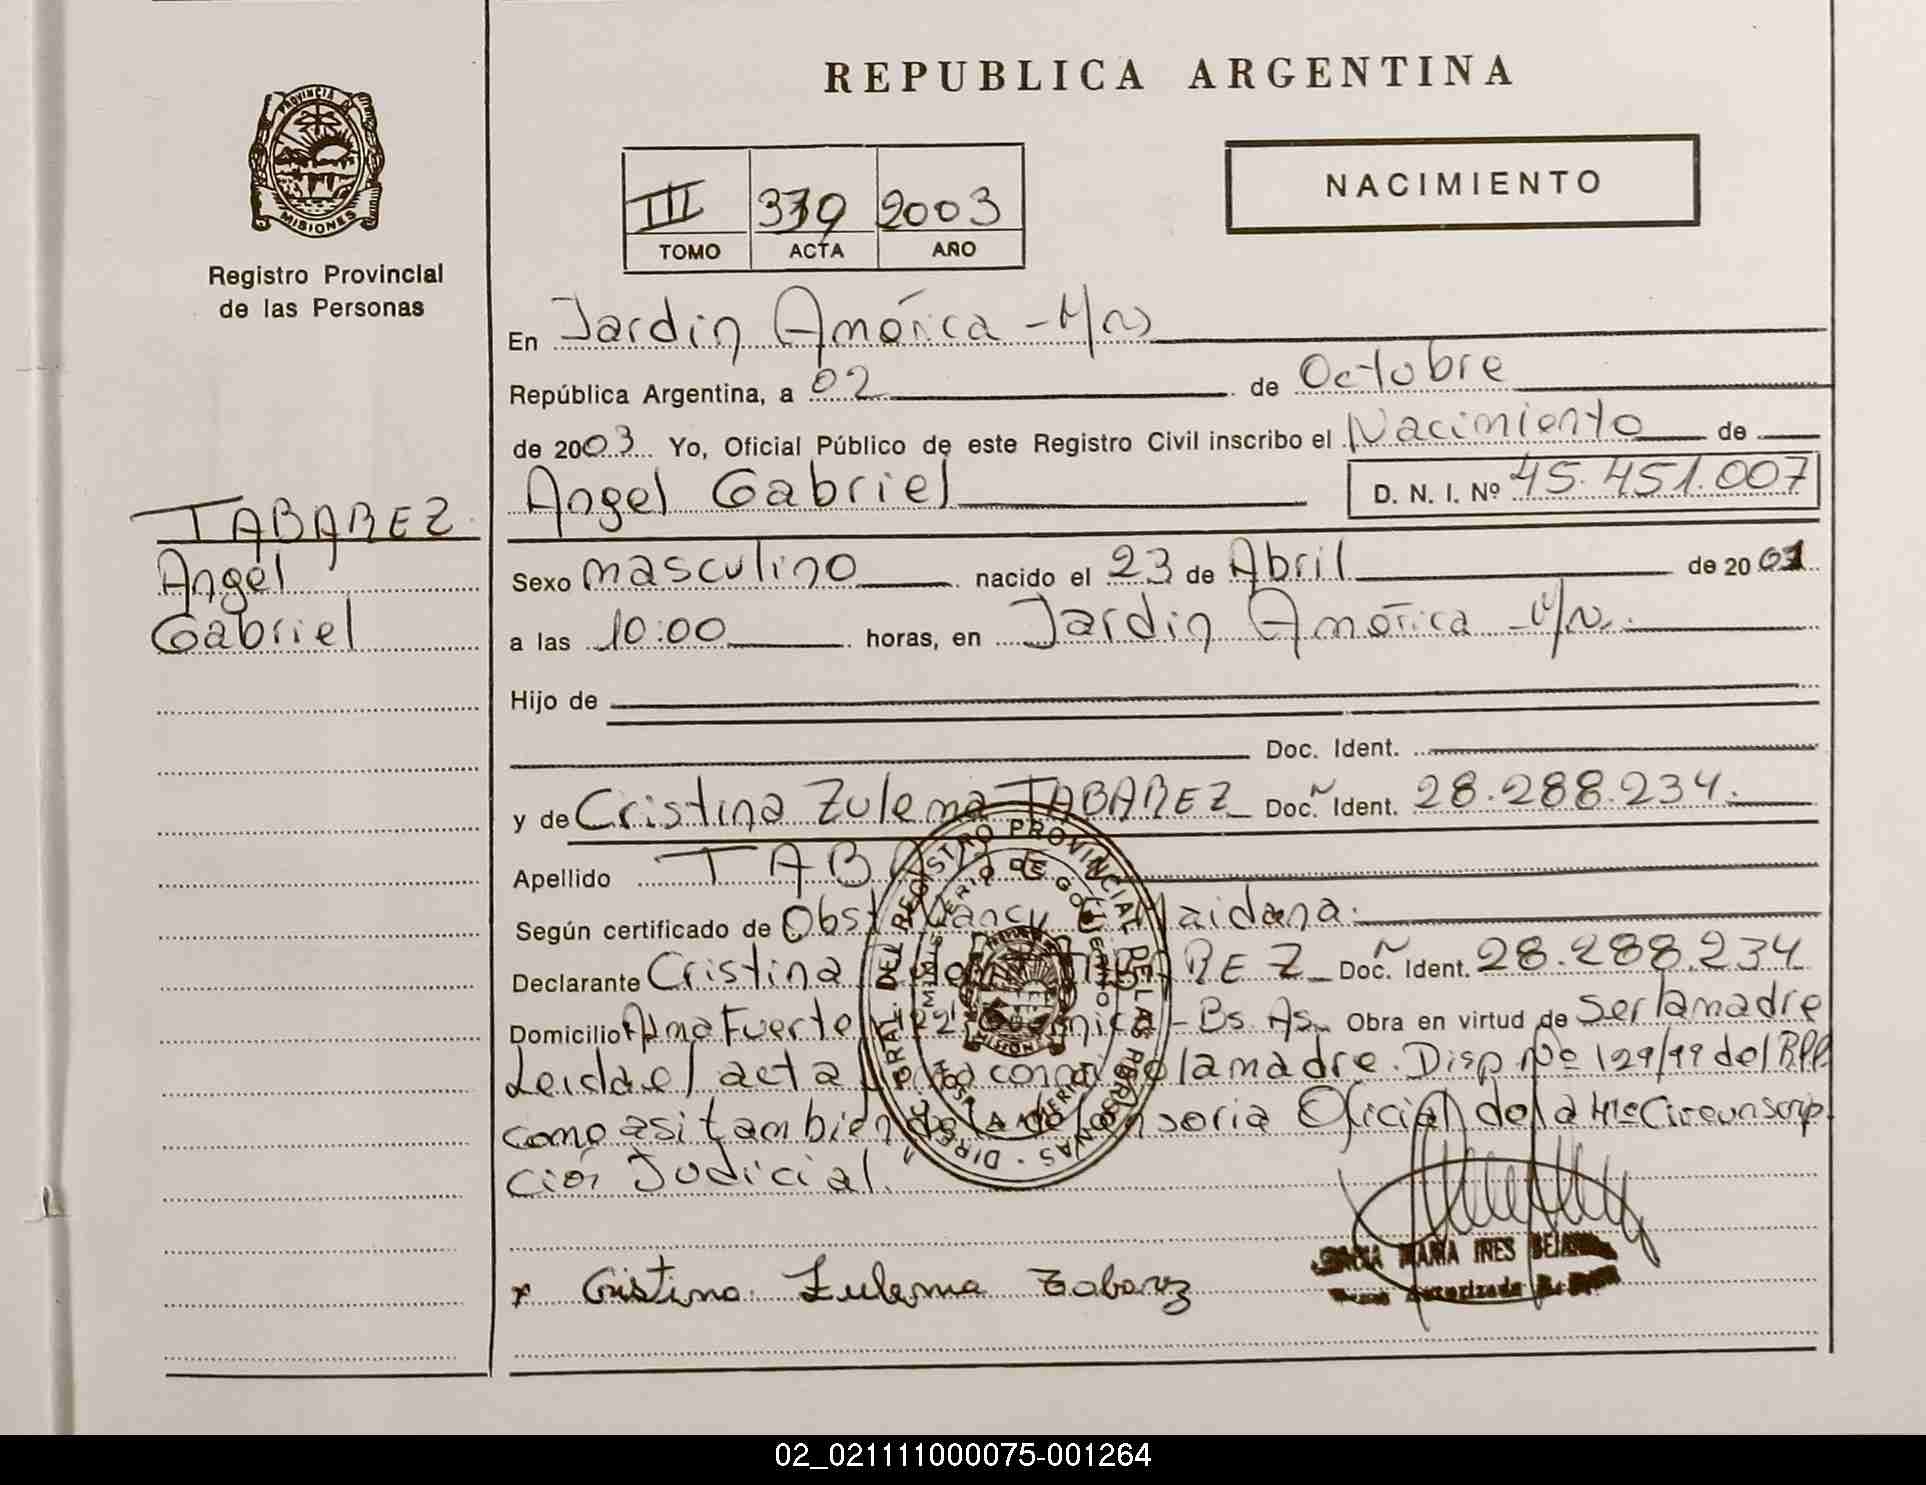 REPUBLICA ARGENTINA
PROVINCIA DE
MISIONES
Registro Provincial
de las Personas
III 379 2003
TOMO ACTA AÑO
NACIMIENTO
TABAREZ
Angel
Gabriel
En Jardin América - M/ns
República Argentina, a 02 de Octubre
de 2003 Yo, Oficial Público de este Registro Civil inscribo el Nacimiento de
Angel Gabriel D. N. I. Nº 45.451.007
Sexo masculino nacido el 23 de Abril de 2001
a las 10:00 horas, en Jardin América - M/ns.
Hijo de
Doc. Ident.
y de Cristina Zulema TABAREZ Doc. Ident. 28.288.234.
Apellido TAB
Según certificado de Obst. Nancy Maidana.
Declarante Cristina TABAREZ Doc. Ident. 28.288.234
Domicilio Alma Fuerte - Bs. As. Obra en virtud de Ser la madre
Leida el acta la madre. Disp Nº 129/99 del RPP
como asi tambien de la defensoria Oficial de la Circunscrip
ción Judicial."
DIREC. GRAL. DEL REGISTRO PROVINCIAL DE LAS PERSONAS
MINISTERIO DE GOBIERNO
MISIONES
x Cristina Zulema Tabarez
MARIA INES
Autorizada
02_021111000075-001264